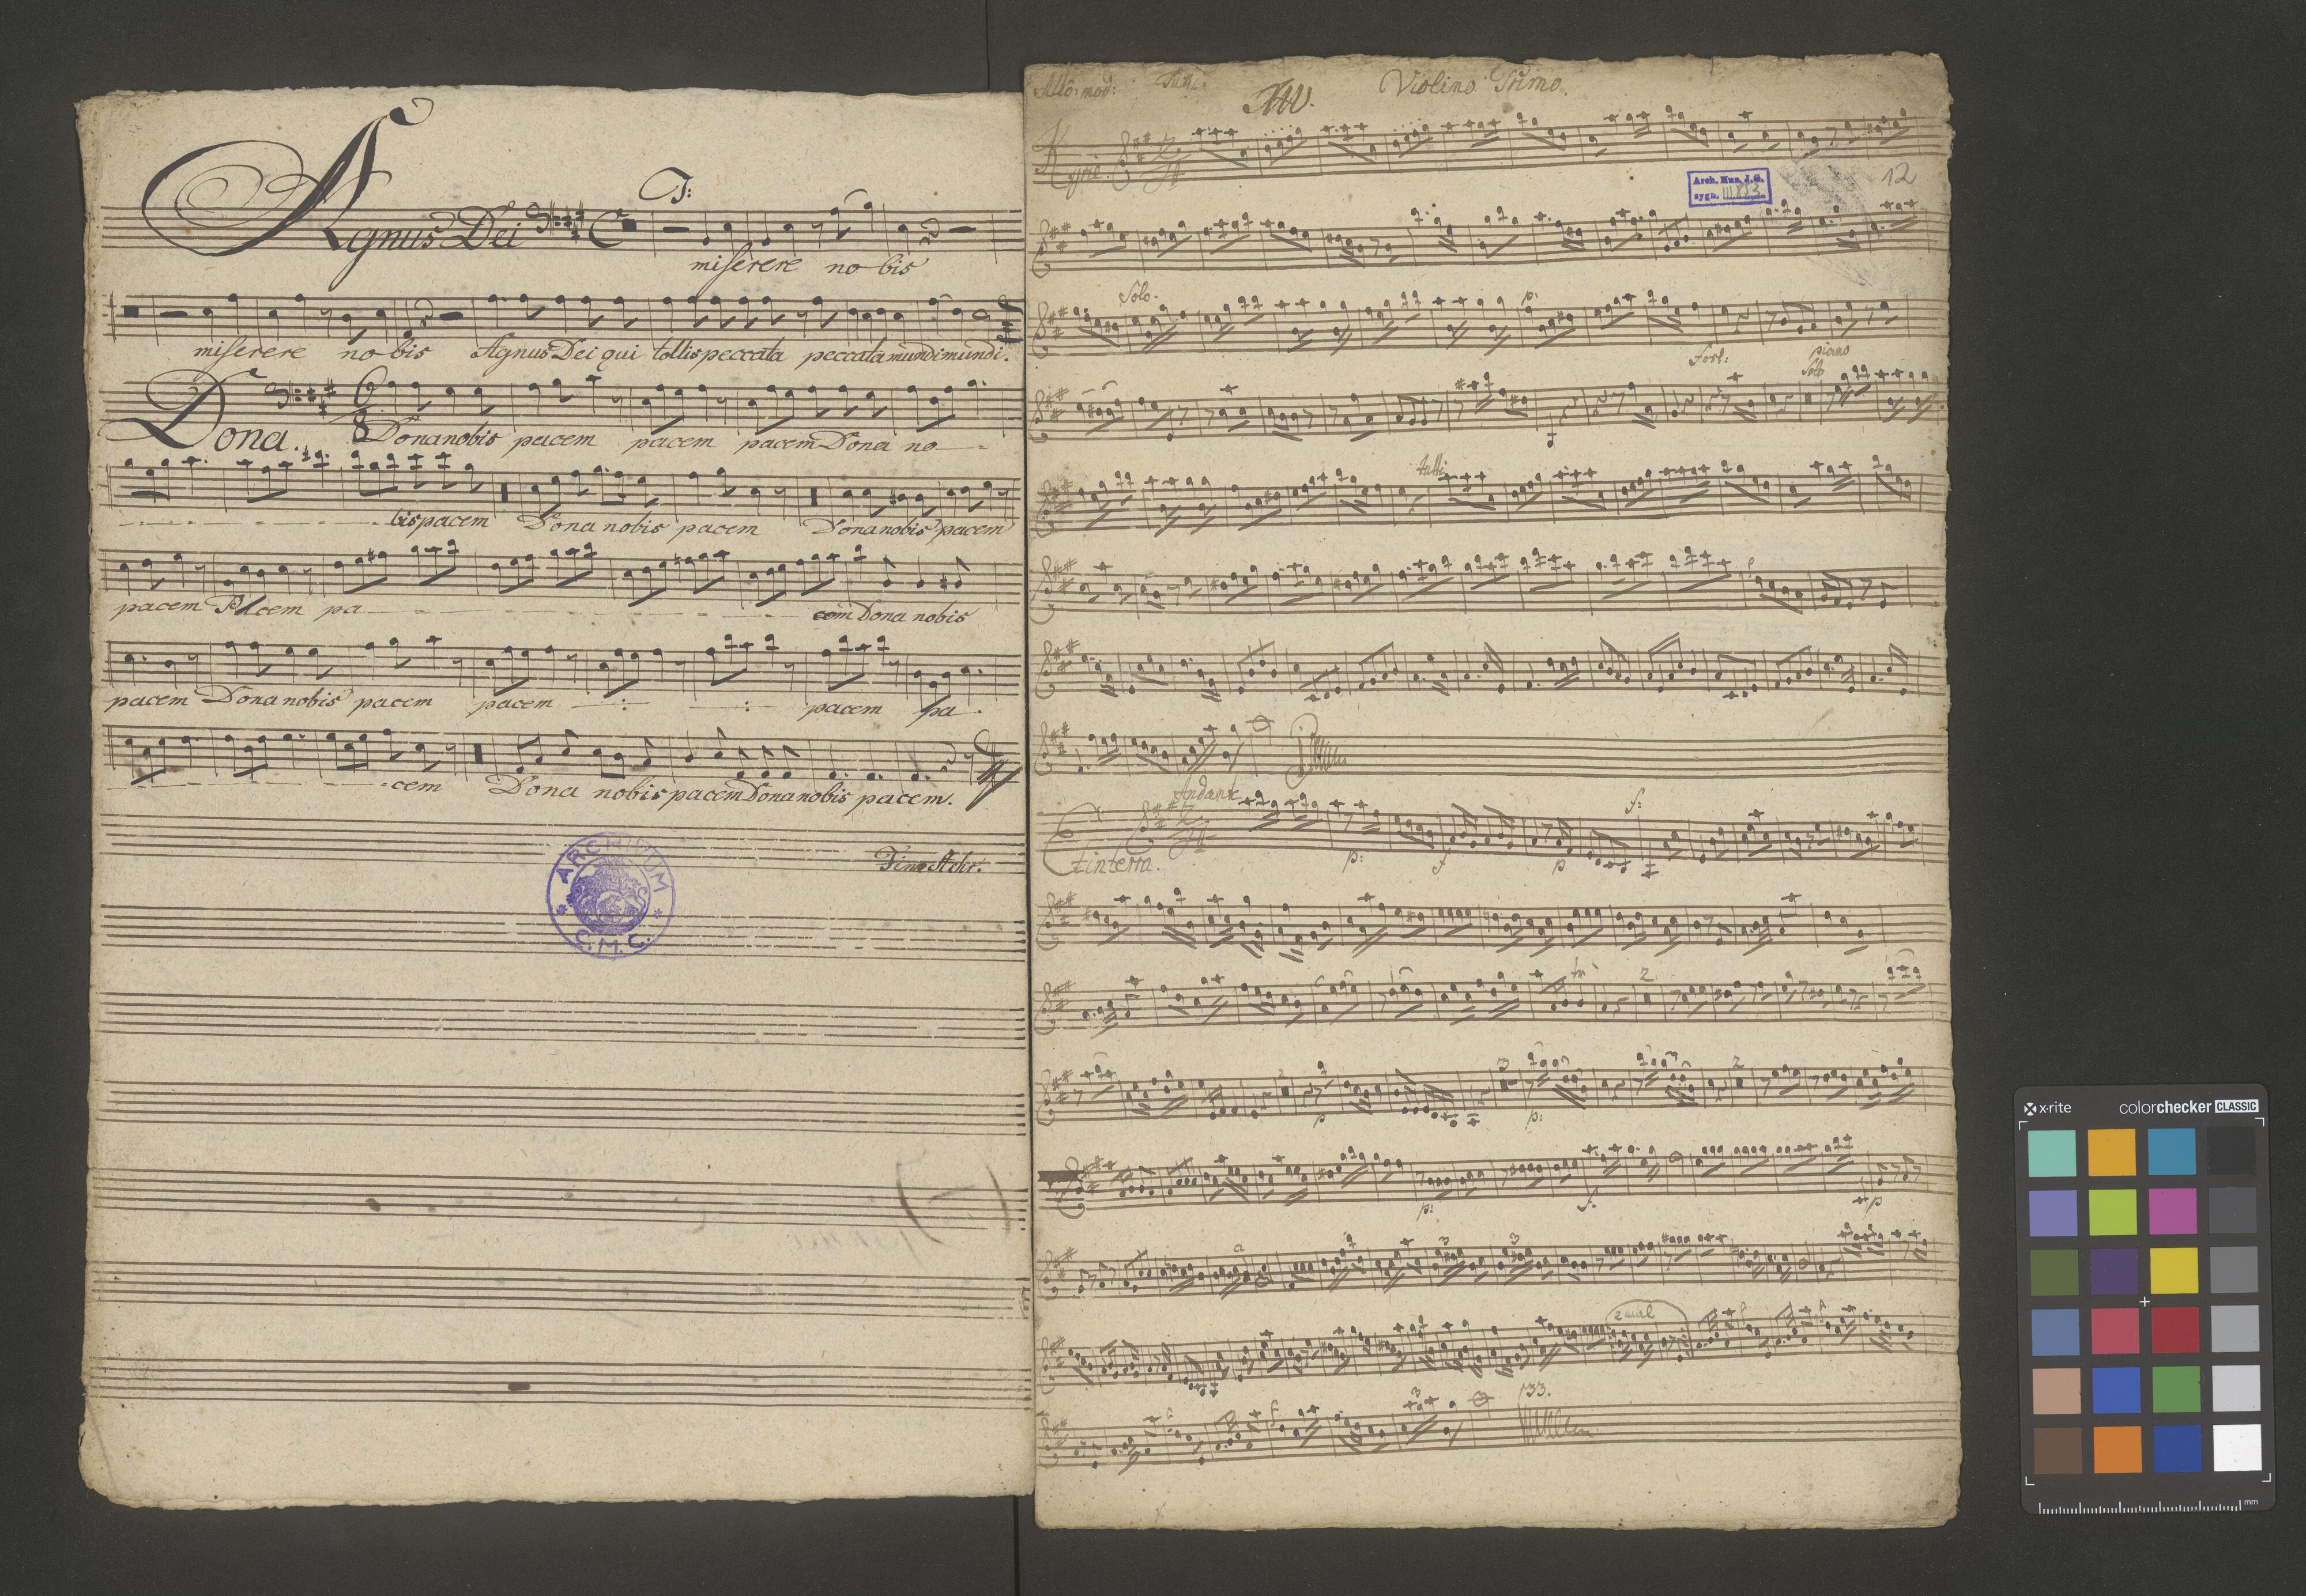 Agnus Dei
T:
miserere no bis
miserere no bis Agnus Dei qui tollis peccata peccata mundi mundi.
Dona.
Dona nobis pacem pacem pacem Dona no
bis pacem Dona nobis pacem Dona nobis pacem
pacem Pacem pa cem Dona nobis
pacem Dona nobis pacem pacem pacem pa
cem Dona nobis pacem Dona nobis pacem.
ARCHIVUM
C.M.C.
Allo: mod:
Violino Primo.
Kyrie.
Arch. Mus. J.G.
sygn.
12
Solo.
p:
fort:
piano
Solo
tutti
Andante
f:
Et in terra.
p:
f
p
tr
2
2
3
2
p
p:
p:
f:
p
3
3
2 mal
3
133.
x·rite
colorchecker CLASSIC
mm